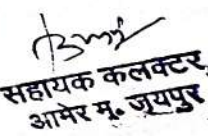 सहायक कलक्टर,
आमेर मु. जयपुर